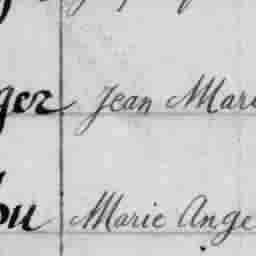 ger Jean Mari
ou Marie Ange